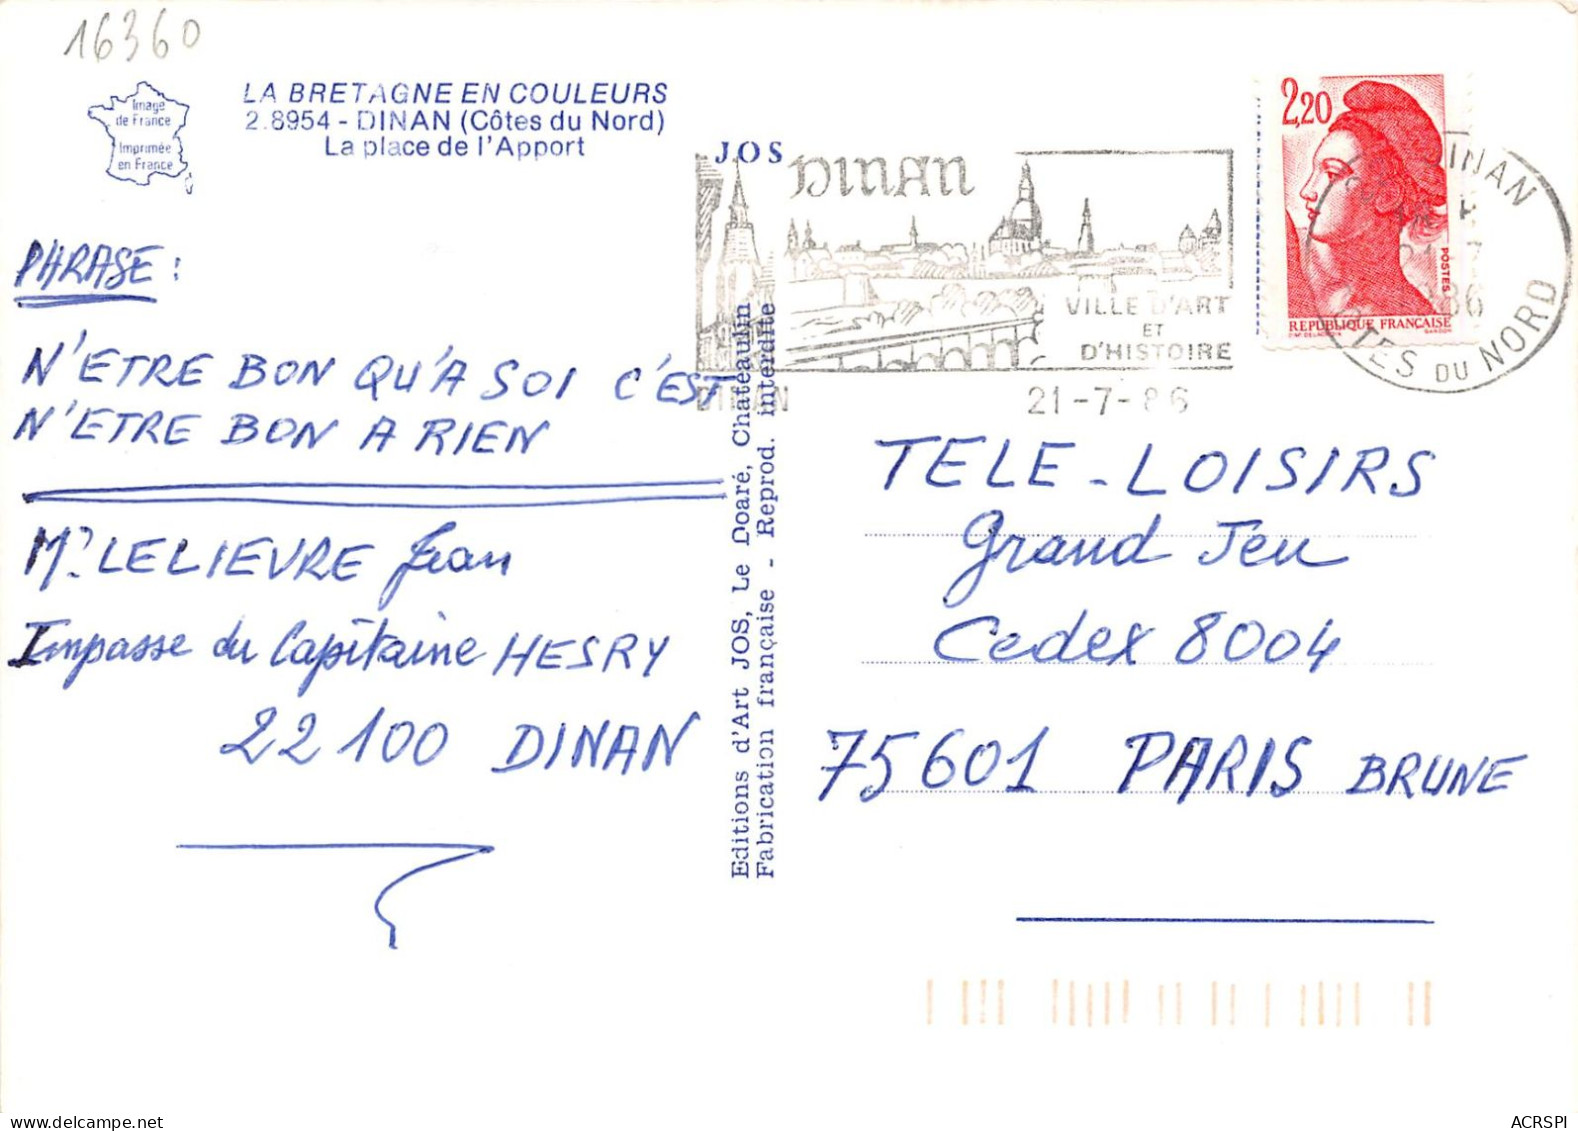 16360
Image
de France
Imprimée
en France
LA BRETAGNE EN COULEURS
2.8954 - DINAN (Côtes du Nord)
La place de l'Apport
JOS
DINAN
VILLE D'ART
ET
D'HISTOIRE
DINAN
21-7-86
2,20
POSTES
REPUBLIQUE FRANÇAISE
DINAN
86
COTES DU NORD
PHRASE :
N'ETRE BON QU'A SOI C'EST
N'ETRE BON A RIEN
Mr LELIEVRE Jean
Impasse du Capitaine HESRY
22100 DINAN
Editions d'Art JOS, Le Doaré, Chateaulin
Fabrication française - Reprod. interdite
TELE-LOISIRS
Grand Jeu
Cedex 8004
75601 PARIS BRUNE
ACRSPI